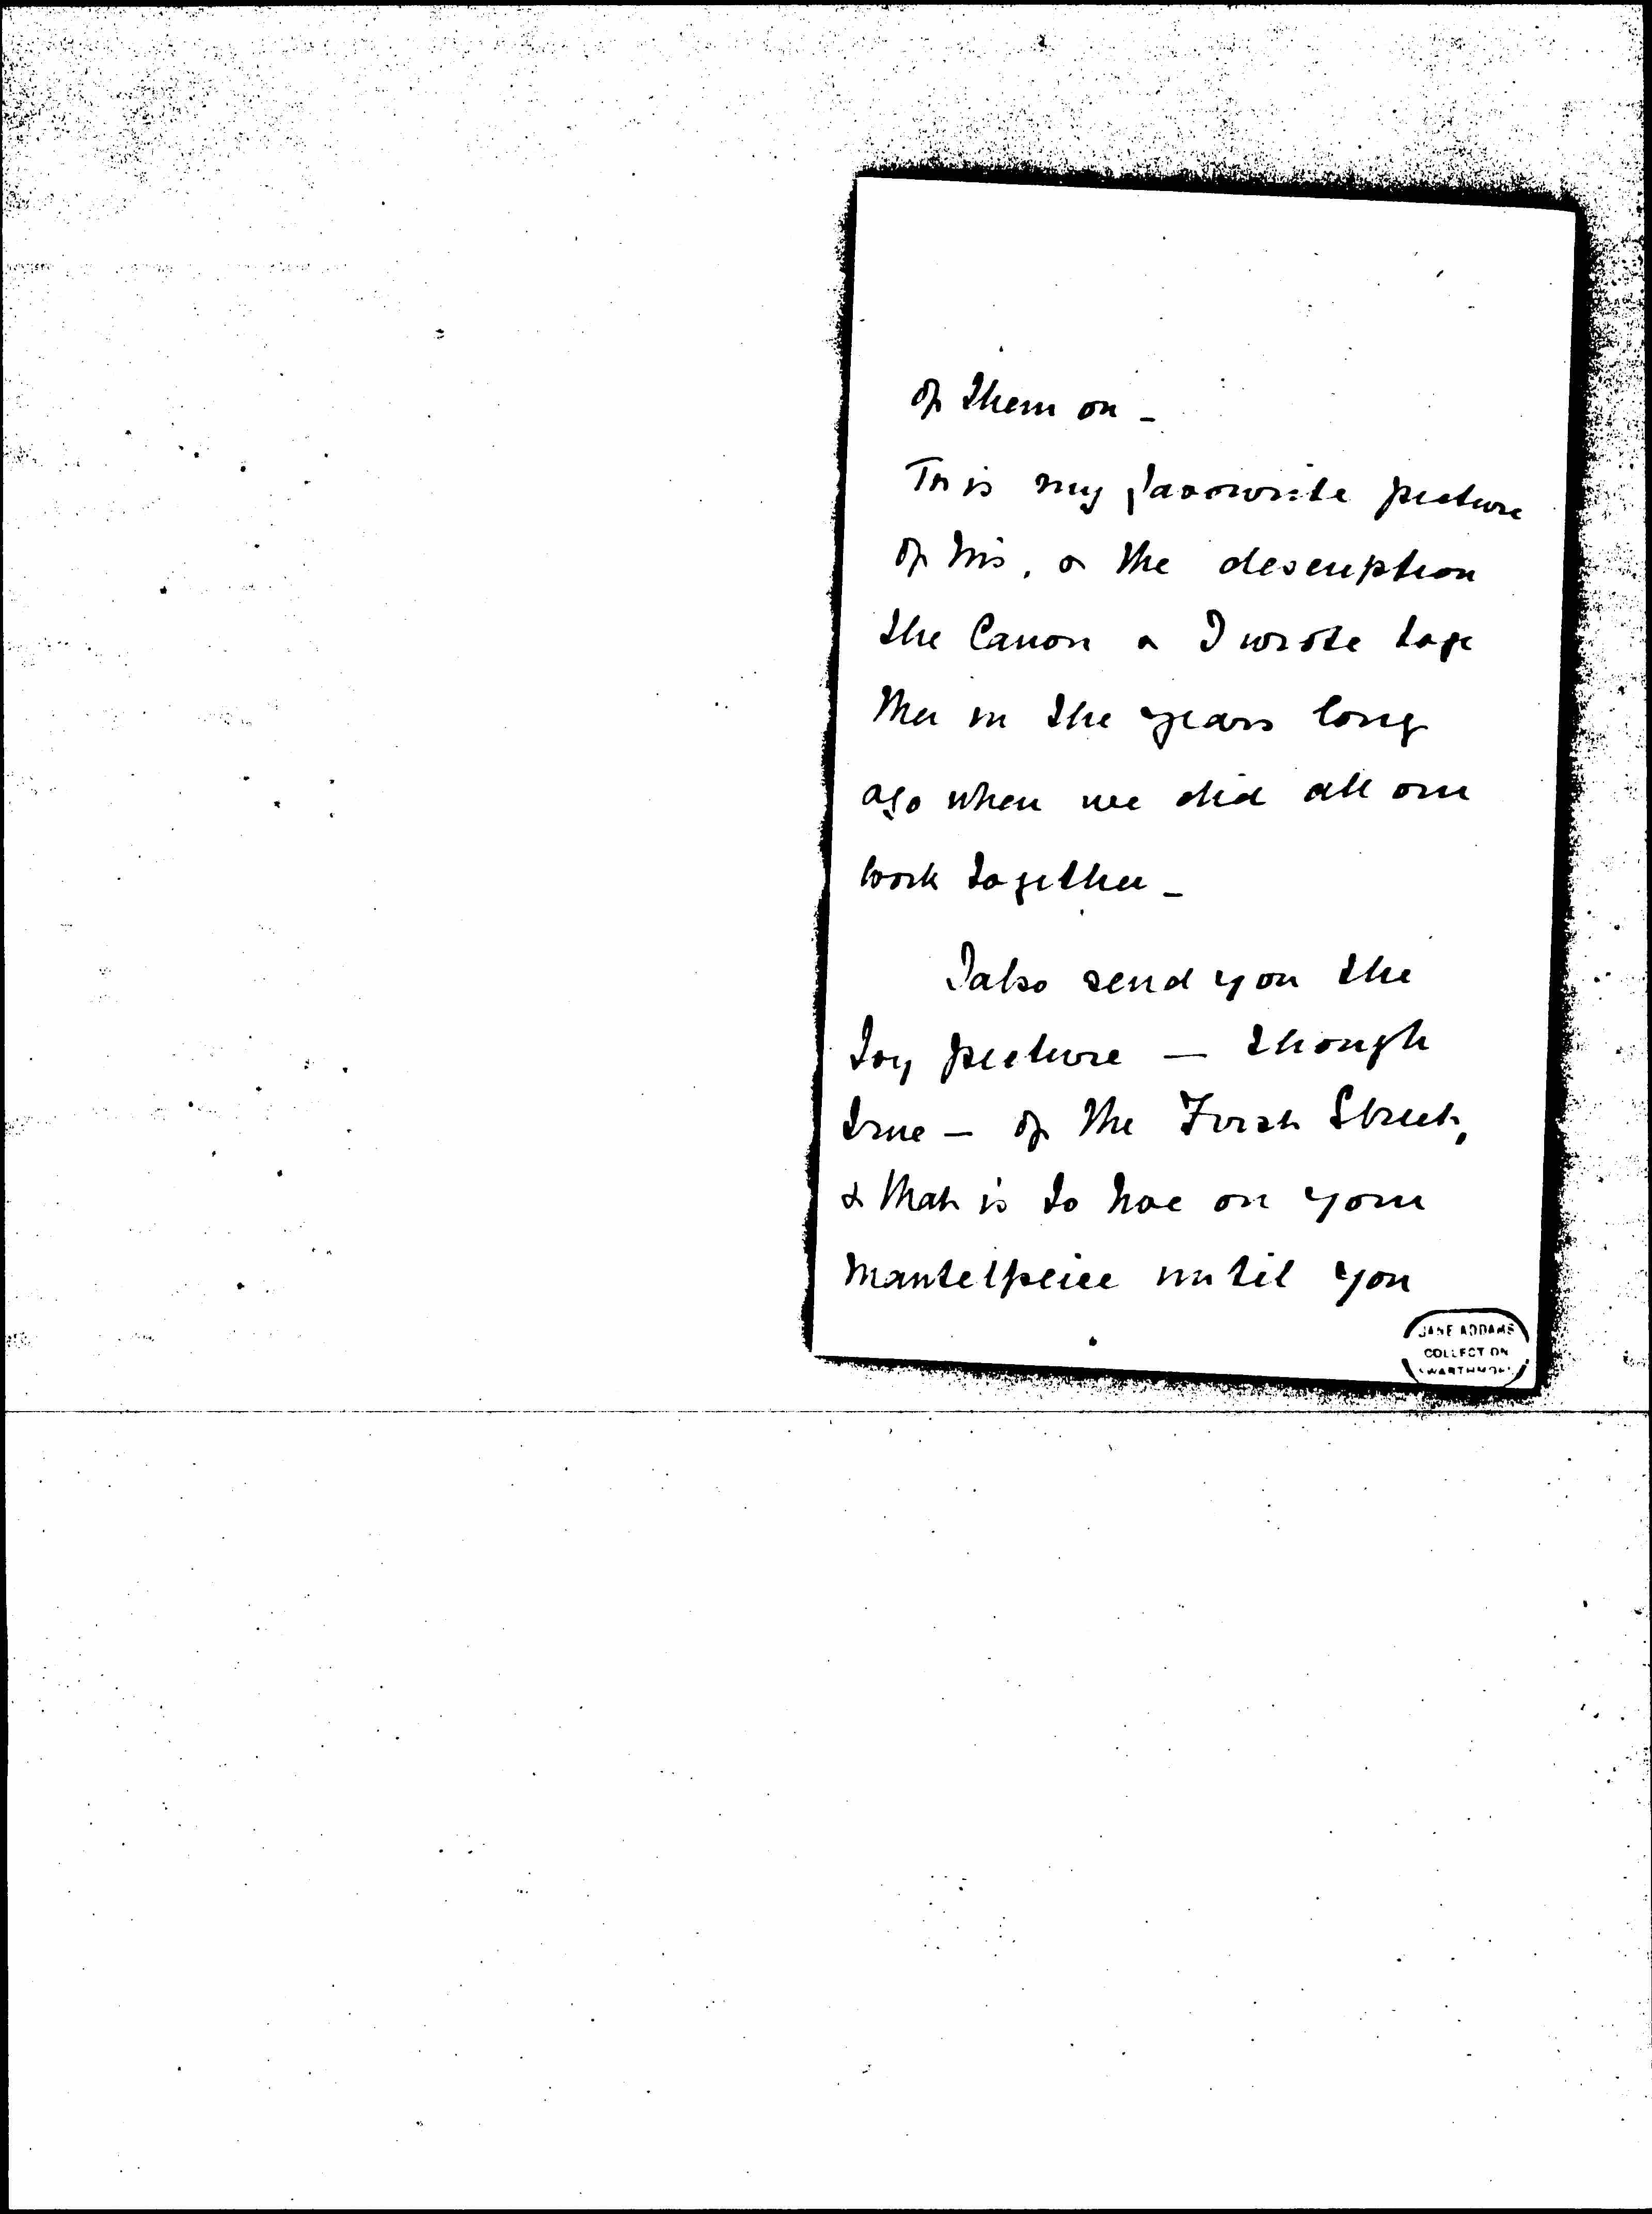 of them on –
This my favourite picture
of his, & the description
the Canon & I wrote toge
ther in the years long
ago when we did all our
work together –
I also send you the
Joy picture – though
true – of the First Street,
& that is to hve on your
mantelpeice until you
JANE ADDAMS
COLLECTION
SWARTHMORE